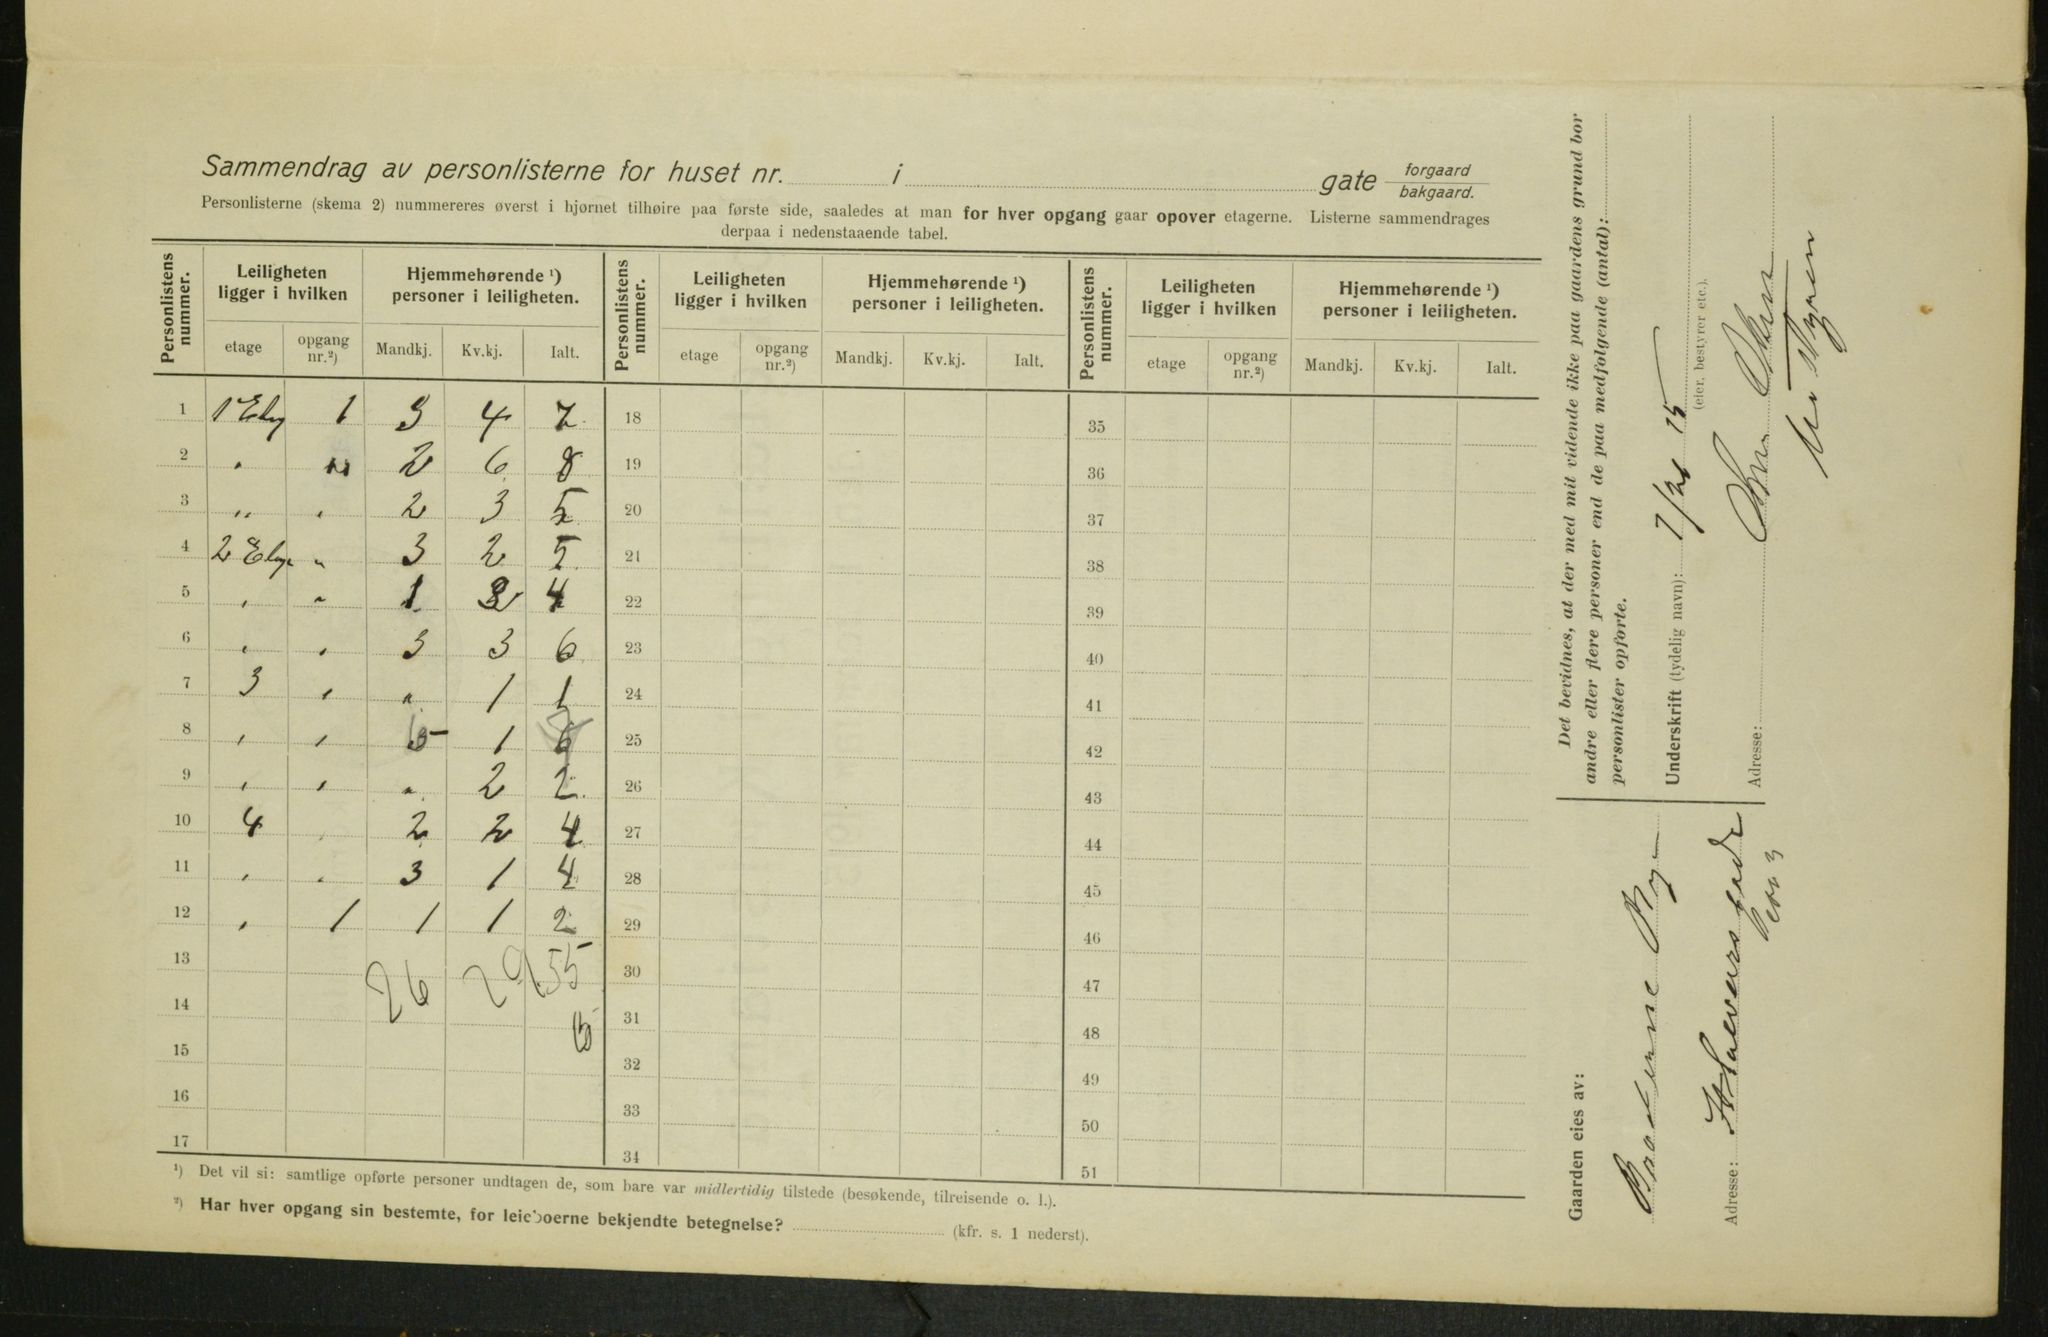 Sammendrag av personlisterne for huset nr. i gate forgaard bakgaard.
Personlisterne (skema 2) nummereres øverst i hjørnet tilhøire paa første side, saaledes at man for hver opgang gaar opover etagerne. Listerne sammendrages
derpaa i nedenstaaende tabel.
Personlistens nummer. Leiligheten ligger i hvilken Hjemmehørende ¹) personer i leiligheten. Personlistens nummer. Leiligheten ligger i hvilken Hjemmehørende ¹) personer i leiligheten. Personlistens nummer. Leiligheten ligger i hvilken Hjemmehørende ¹) personer i leiligheten.
etage opgang nr.²) Mandkj. Kv.kj. Ialt. etage opgang nr.²) Mandkj. Kv.kj. Ialt. etage opgang nr.²) Mandkj. Kv.kj. Ialt.
1 1 Etag 1 3 4 7 18 35
2 " " 2 6 8 19 36
3 " " 2 3 5 20 37
4 2 Etag " 3 2 5 21 38
5 " " 1 3 4 22 39
6 " " 3 3 6 23 40
7 3 " " 1 1 24 41
8 " " 5 1 6 25 42
9 " " " 2 2 26 43
10 4 " 2 2 4 27 44
11 " " 3 1 4 28 45
12 " 1 1 1 2 29 46
13 26 29 55 30 47
14 31 48
15 32 49
16 33 50
17 34 51
¹) Det vil si: samtlige opførte personer undtagen de, som bare var midlertidig tilstede (besøkende, tilreisende o. l.).
²) Har hver opgang sin bestemte, for leieboerne bekjendte betegnelse? (kfr. s. 1 nederst).
Det bevidnes, at der med mit vidende ikke paa gaardens grund bor
andre eller flere personer end de paa medfølgende (antal):
personlister opførte.
Underskrift (tydelig navn): 7/2 15
(eier, bestyrer etc.).
Adresse:
Gaarden eies av:
Adresse: